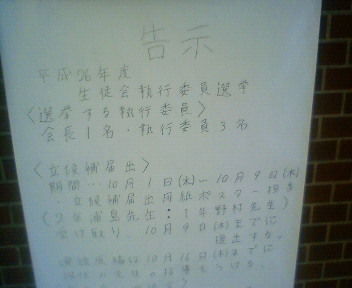 告示
平成26年度
生徒会執行委員選挙
〈選挙する執行委員〉
会長1名・執行委員3名
〈立候補届出〉
期間…10月1日(水)ー10月9日(木)
・立候補届出用紙ポスター担当
(2年浦島先生:1年野村先生)
受け取り、10月9日(木)までに
提出する。
演説原稿は10月16日(木)までに